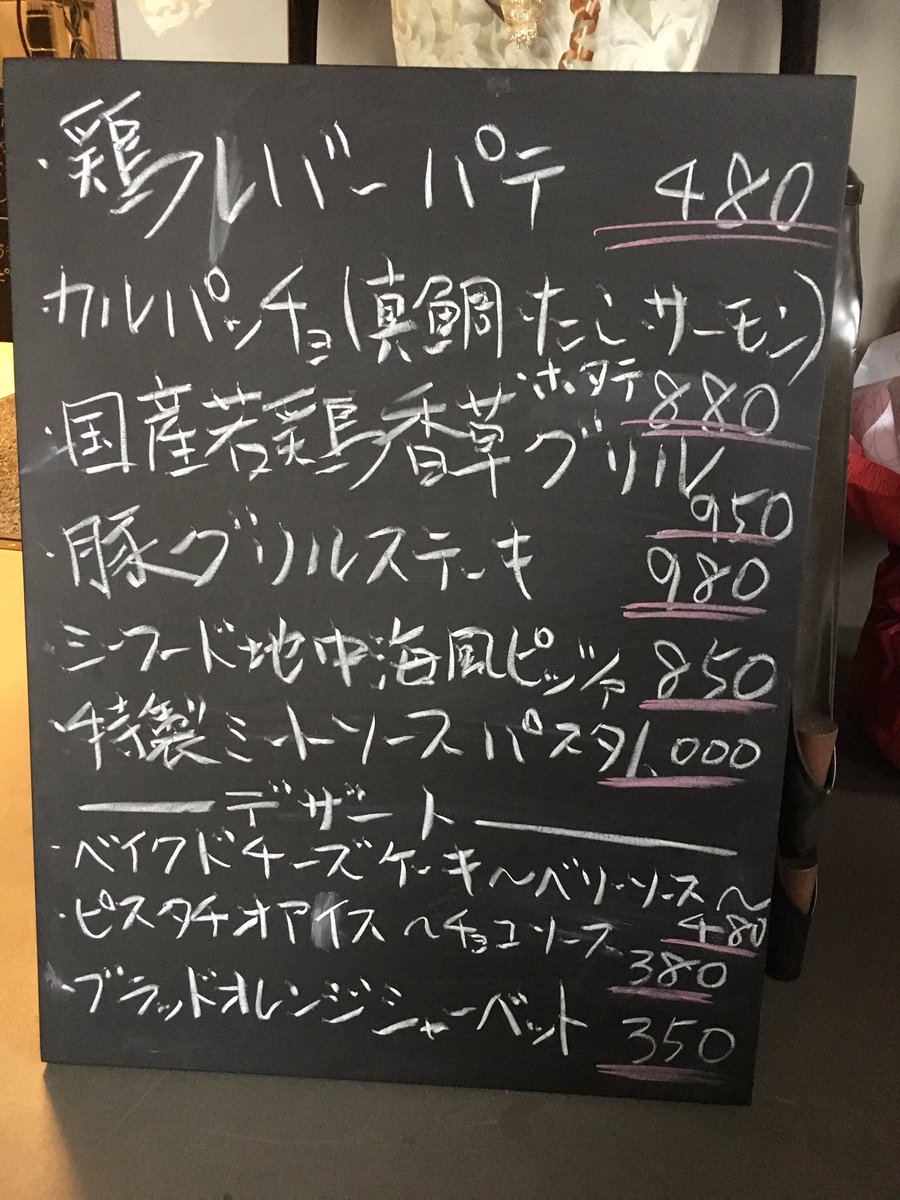 ・鶏レバーパテ 480
カルパッチョ(真鯛・たこ・サーモン)
・ホタテ 880
・国産若鶏香草グリル
950
・豚グリルステーキ 980
シーフード地中海風ピッツァ 850
・特製ミートソースパスタ 1,000
デザート
・ベイクドチーズケーキ〜ベリーソース〜
480
・ピスタチオアイス〜チョコソース
380
・ブラッドオレンジシャーベット 350